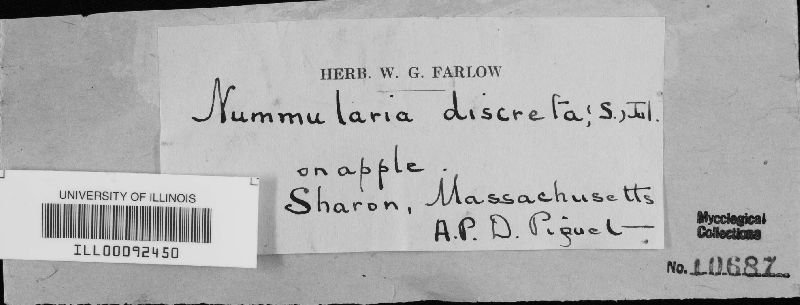 HERB. W. G. FARLOW
Nummularia discreta; S., Tul.
on apple.
Sharon, Massachusetts
A.P. D. Piguet
UNIVERSITY OF ILLINOIS
ILL00092450
Mycological
Collections
No. 10687